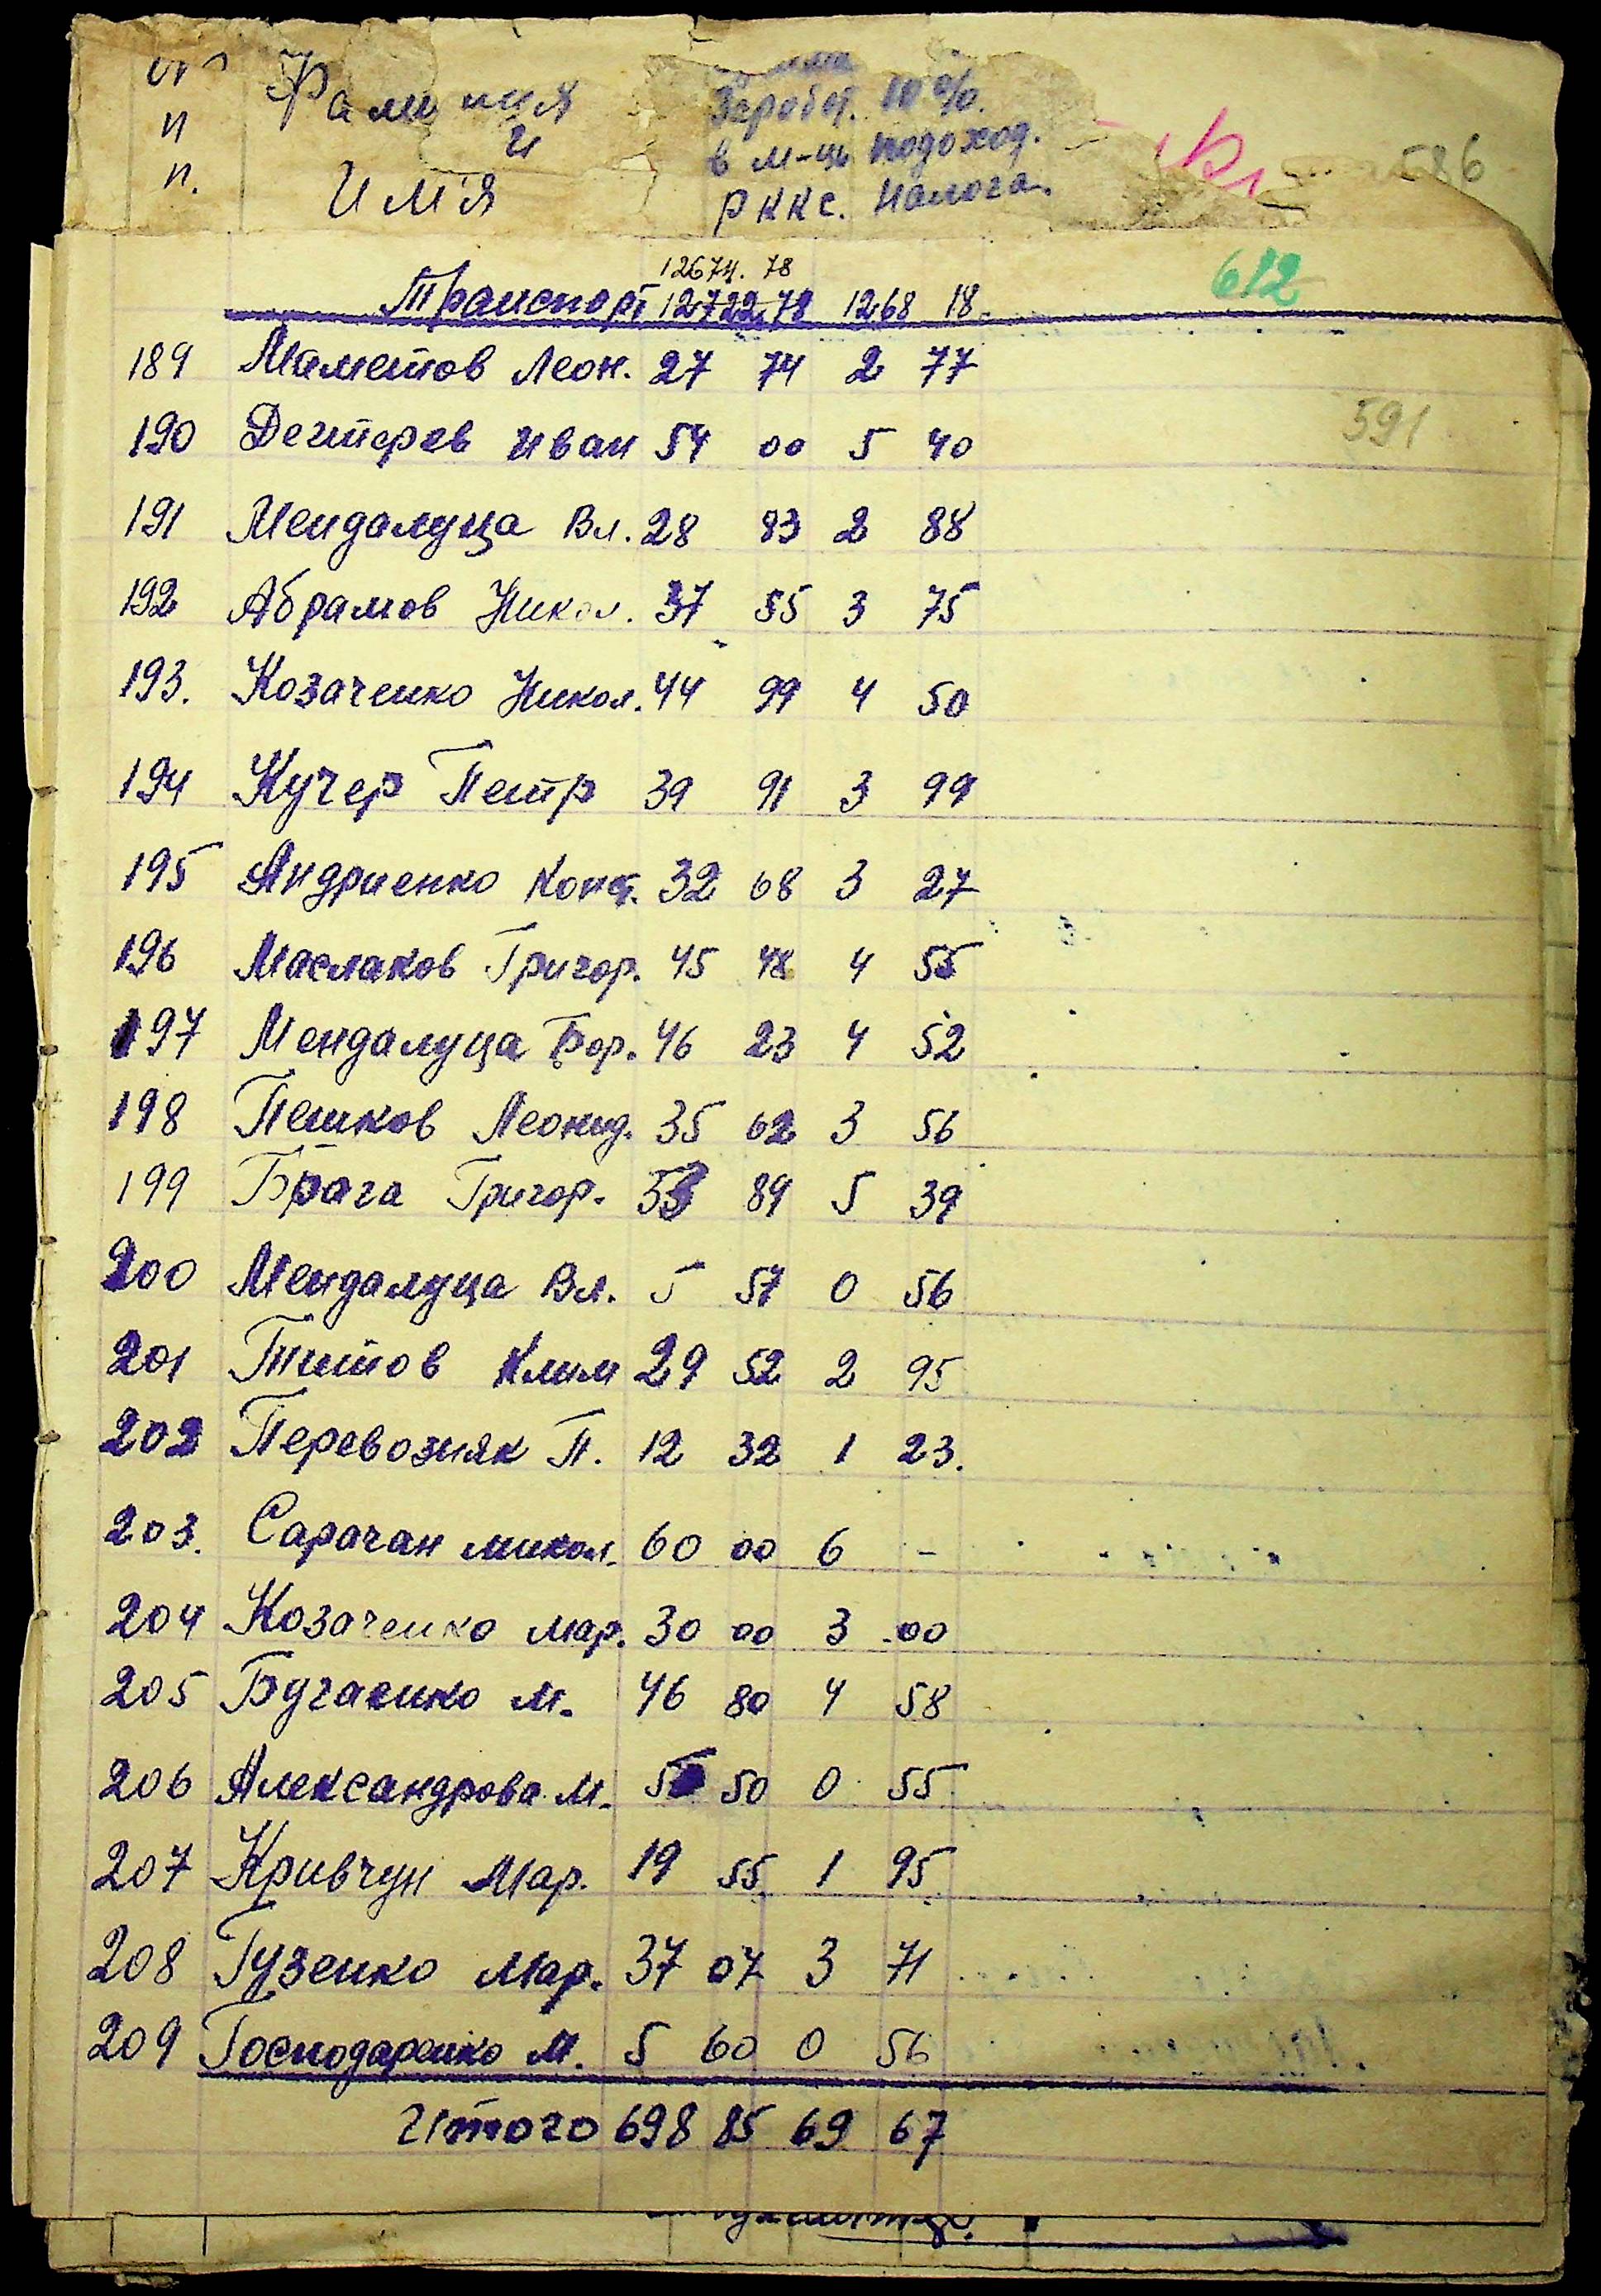 п Фамилия Заработ. 10%
и в м-це подоход.
п. Имя РККС. налога.
586
12674. 78
Транспорт 12722,78 1268 18.
612
189 Маметов Леон. 27 74 2 77
591
190 Дегтерев Иван 54 00 5 40
191 Мендалуца Вл. 28 83 2 88
192 Абрамов Никол. 37 55 3 75
193. Козаченко Никол. 44 99 4 50
194 Кучер Петр 39 91 3 99
195 Андриенко Конст. 32 68 3 27
196 Маслаков Григор. 45 48 4 55
197 Мендалуца Бор. 46 23 4 52
198 Пешков Леонид. 35 62 3 56
199 Брага Григор. 53 89 5 39
200 Мендалуца Вл. 5 57 0 56
201 Титов Клим 29 52 2 95
202 Перевозняк П. 12 32 1 23.
203. Сарачан микол. 60 00 6 -
204 Козаченко мар. 30 00 3 00
205 Бугаенко М. 46 80 4 58
206 Александрова М. 5 50 0 55
207 Кривчун Мар. 19 55 1 95
208 Гузенко Мар. 37 07 3 71
209 Господаренко М. 5 60 0 56
Итого 698 85 69 67